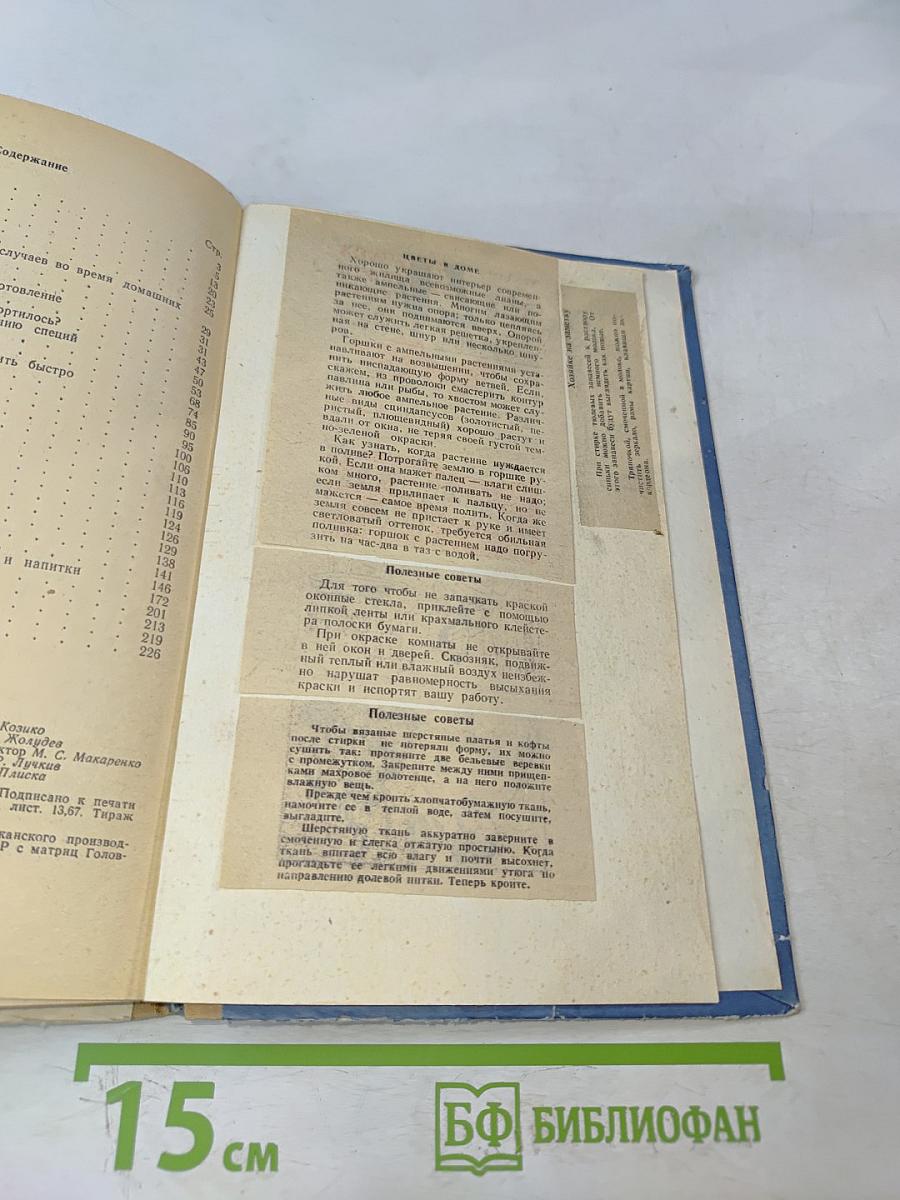 Содержание
Стр.
3
5
15
случаев во время домашних
20
23
25
отовление
29
ортилось?
31
нию специй
31
43
47
ить быстро
50
53
68
74
85
90
95
100
106
110
113
116
119
124
126
129
138
и напитки
141
146
172
201
213
219
226
Козико
Жолудев
ктор М. С. Макаренко
Р. Лучкив
Плиска
Подписано к печати
лист. 13,67. Тираж
канского производ-
Р с матриц Голов-
ЦВЕТЫ В ДОМЕ
Хорошо украшают интерьер современ-
ного жилища всевозможные лианы, а
также ампельные — свисающие или по-
никающие растения. Многим лазающим
растениям нужна опора; только цепляясь
за нее, они поднимаются вверх. Опорой
может служить легкая решетка, укреплен-
ная на стене, шнур или несколько шну-
ров.
Горшки с ампельными растениями уста-
навливают на возвышении, чтобы сохра-
нить ниспадающую форму ветвей. Если,
скажем, из проволоки смастерить контур
павлина или рыбы, то хвостом может слу-
жить любое ампельное растение. Различ-
ные виды сциндапсусов (золотистый, пе-
ристый, плющевидный) хорошо растут и
вдали от окна, не теряя своей густой тем-
но-зеленой окраски.
Как узнать, когда растение нуждается
в поливе? Потрогайте землю в горшке ру-
кой. Если она мажет палец — влаги слиш-
ком много, растение поливать не надо;
если земля прилипает к пальцу, но не
мажется — самое время полить. Когда же
земля совсем не пристает к руке и имеет
светловатый оттенок, требуется обильная
поливка: горшок с растением надо погру-
зить на час-два в таз с водой.
Полезные советы
Для того чтобы не запачкать краской
оконные стекла, приклейте с помощью
липкой ленты или крахмального клейсте-
ра полоски бумаги.
При окраске комнаты не открывайте
в ней окон и дверей. Сквозняк, подвиж-
ный теплый или влажный воздух неизбеж-
но нарушат равномерность высыхания
краски и испортят вашу работу.
Полезные советы
Чтобы вязаные шерстяные платья и кофты
после стирки не потеряли форму, их можно
сушить так: протяните две бельевые веревки
с промежутком. Закрепите между ними прищеп-
ками махровое полотенце, а на него положите
влажную вещь.
Прежде чем кроить хлопчатобумажную ткань,
намочите ее в теплой воде, затем посушите,
выгладите.
Шерстяную ткань аккуратно заверните в
смоченную и слегка отжатую простыню. Когда
ткань впитает всю влагу и почти высохнет,
прогладьте ее легкими движениями утюга по
направлению долевой нитки. Теперь кроите.
Хозяйке на заметку
При стирке тюлевых занавесей к раствору
синьки можно добавить немного мыла. От
этого занавеси будут выглядеть как новые.
Тряпочкой, смоченной в молоке, можно по-
чистить зеркало, рамы картин, клавиши ак-
кордеона.
15 см
БФ БИБЛИОФАН